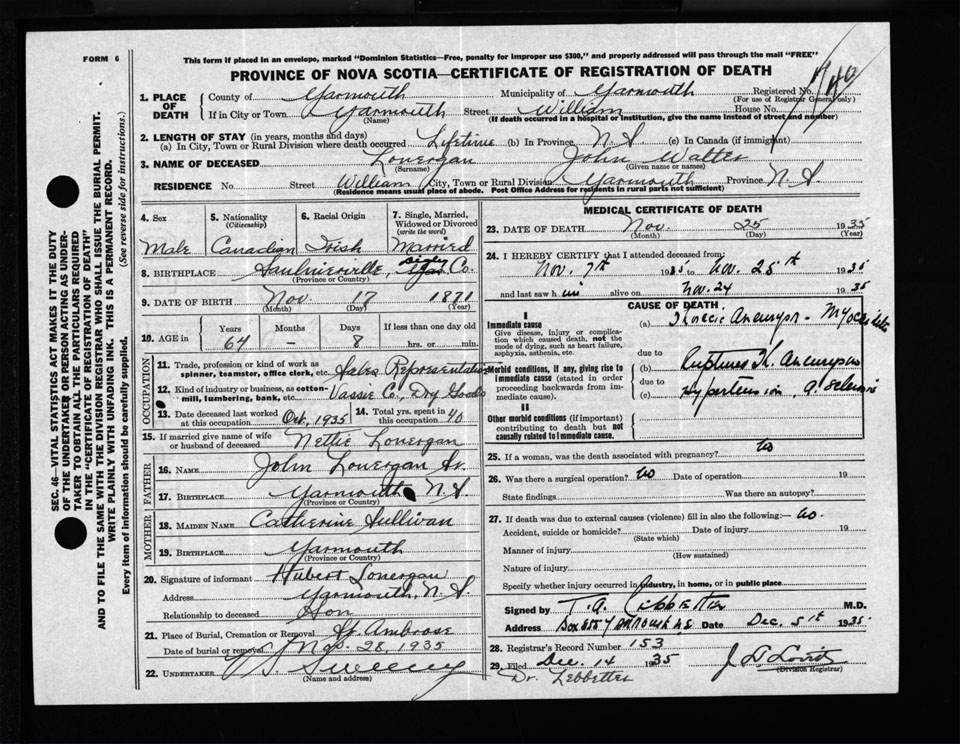 FORM 6
This form if placed in an envelope, marked "Dominion Statistics—Free, penalty for improper use $300," and properly addressed will pass through the mail "FREE"
PROVINCE OF NOVA SCOTIA—CERTIFICATE OF REGISTRATION OF DEATH
SEC. 46—VITAL STATISTICS ACT MAKES IT THE DUTY
OF THE UNDERTAKER OR PERSON ACTING AS UNDER-
TAKER TO OBTAIN ALL THE PARTICULARS REQUIRED
IN THE "CERTIFICATE OF REGISTRATION OF DEATH"
AND TO FILE THE SAME WITH THE DIVISION REGISTRAR WHO SHALL ISSUE THE BURIAL PERMIT.
WRITE PLAINLY WITH UNFADING INK. THIS IS A PERMANENT RECORD.
Every item of information should be carefully supplied. (See reverse side for instructions.)
1. PLACE OF DEATH County of Yarmouth Municipality of Yarmouth Registered No.
(For use of Registrar General only)
If in City or Town Yarmouth Street William House No.
(Name) (If death occurred in a hospital or institution, give the name instead of street and number)
2. LENGTH OF STAY (in years, months and days)
(a) In City, Town or Rural Division where death occurred Lifetime (b) In Province N.S. (c) In Canada (if immigrant)
3. NAME OF DECEASED Lonergan John Walter
(Surname) (Given name or names)
RESIDENCE No. Street William City, Town or Rural Division Yarmouth Province N.S.
(Residence means usual place of abode. Post Office Address for residents in rural parts not sufficient)
4. Sex Male
5. Nationality (Citizenship) Canadian
6. Racial Origin Irish
7. Single, Married, Widowed or Divorced (write the word) Married
8. BIRTHPLACE Saulnierville, Digby Co.
(Province or Country)
9. DATE OF BIRTH Nov. 17 1871
(Month) (Day) (Year)
10. AGE in Years Months Days If less than one day old
64 – 8 hrs. or min.
OCCUPATION
11. Trade, profession or kind of work as spinner, teamster, office clerk, etc. Sales Representative
12. Kind of industry or business, as cotton-mill, lumbering, bank, etc. Vassie Co., Dry Goods
13. Date deceased last worked at this occupation Oct, 1935 14. Total yrs. spent in this occupation 40
15. If married give name of wife or husband of deceased Nettie Lonergan
FATHER
16. NAME John Lonergan Sr.
17. BIRTHPLACE Yarmouth N.S.
(Province or Country)
MOTHER
18. MAIDEN NAME Catherine Sullivan
19. BIRTHPLACE Yarmouth
(Province or Country)
20. Signature of informant Hubert Lonergan
Address Yarmouth, N.S.
Relationship to deceased Son
21. Place of Burial, Cremation or Removal St. Ambrose
Date of burial or removal Nov. 28, 1935
22. UNDERTAKER Sweeny
(Name and address)
MEDICAL CERTIFICATE OF DEATH
23. DATE OF DEATH Nov. 25 1935
(Month) (Day) (Year)
24. I HEREBY CERTIFY that I attended deceased from:
Nov. 7th 1935 to Nov. 25th 1935
and last saw him alive on Nov. 24 1935
CAUSE OF DEATH
I
Immediate cause
Give disease, injury or complication which caused death, not the mode of dying, such as heart failure, asphyxia, asthenia, etc.
(a) Thoracic Aneurysm - Myocarditis
due to
Morbid conditions, if any, giving rise to immediate cause (stated in order proceeding backwards from immediate cause).
(b) Ruptured Th. Aneurysm
due to
(c) Hypertension,
II
Other morbid conditions (if important) contributing to death but not causally related to immediate cause.
25. If a woman, was the death associated with pregnancy? No
26. Was there a surgical operation? No Date of operation 19
State findings Was there an autopsy?
27. If death was due to external causes (violence) fill in also the following:— No.
Accident, suicide or homicide? Date of injury 19
(State which)
Manner of injury
(How sustained)
Nature of injury
Specify whether injury occurred in industry, in home, or in public place
Signed by T.A. Lebbetter M.D.
Address Box 557 Yarmouth N.S. Date Dec. 5th 1935
28. Registrar's Record Number 153
29. Filed Dec 14 1935
(Division Registrar)
Dr. Lebbetter